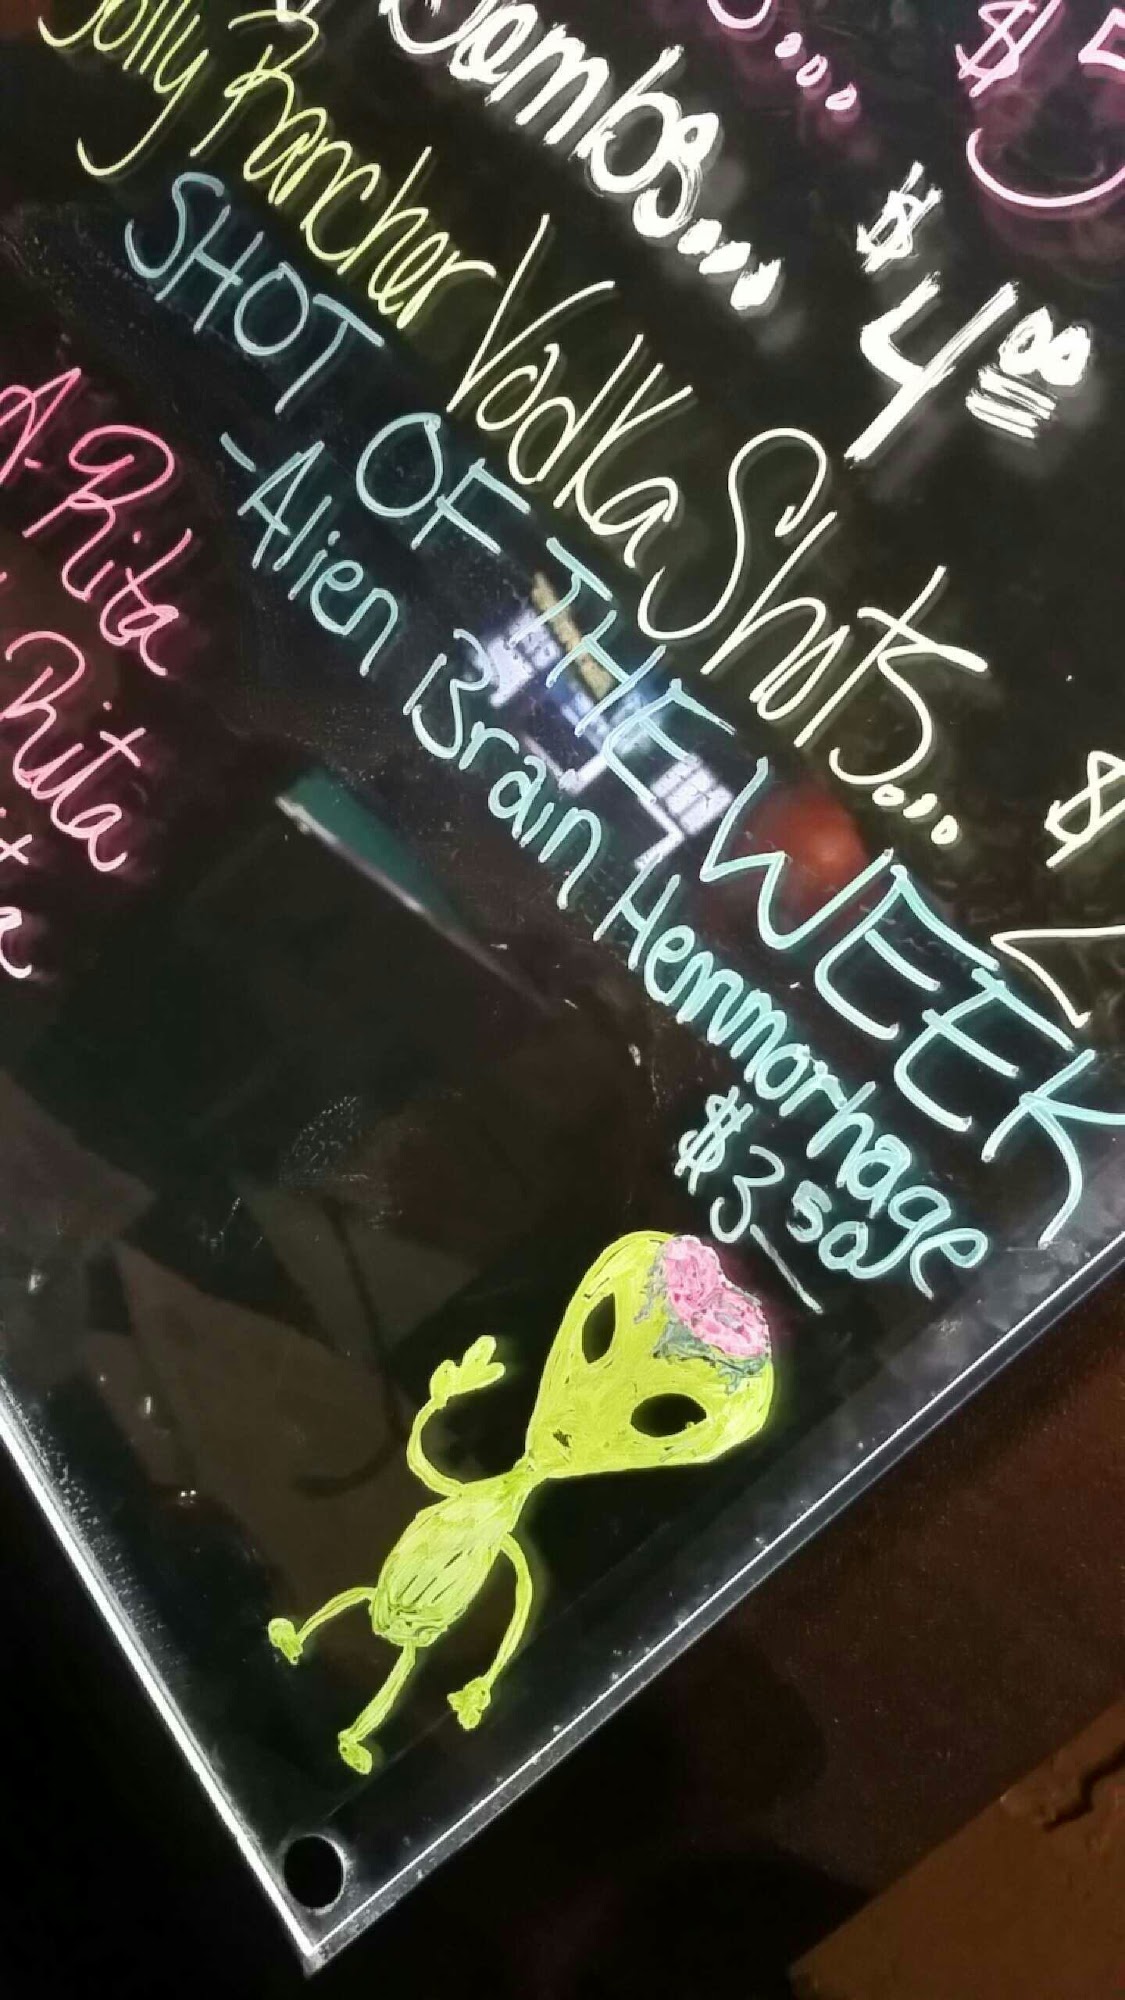 $5
Bombs... $4.00
Jolly Rancher Vodka Shots... $
SHOT OF THE WEEK
-Alien Brain Hemmorhage
$3.50
A-Rita
Rita